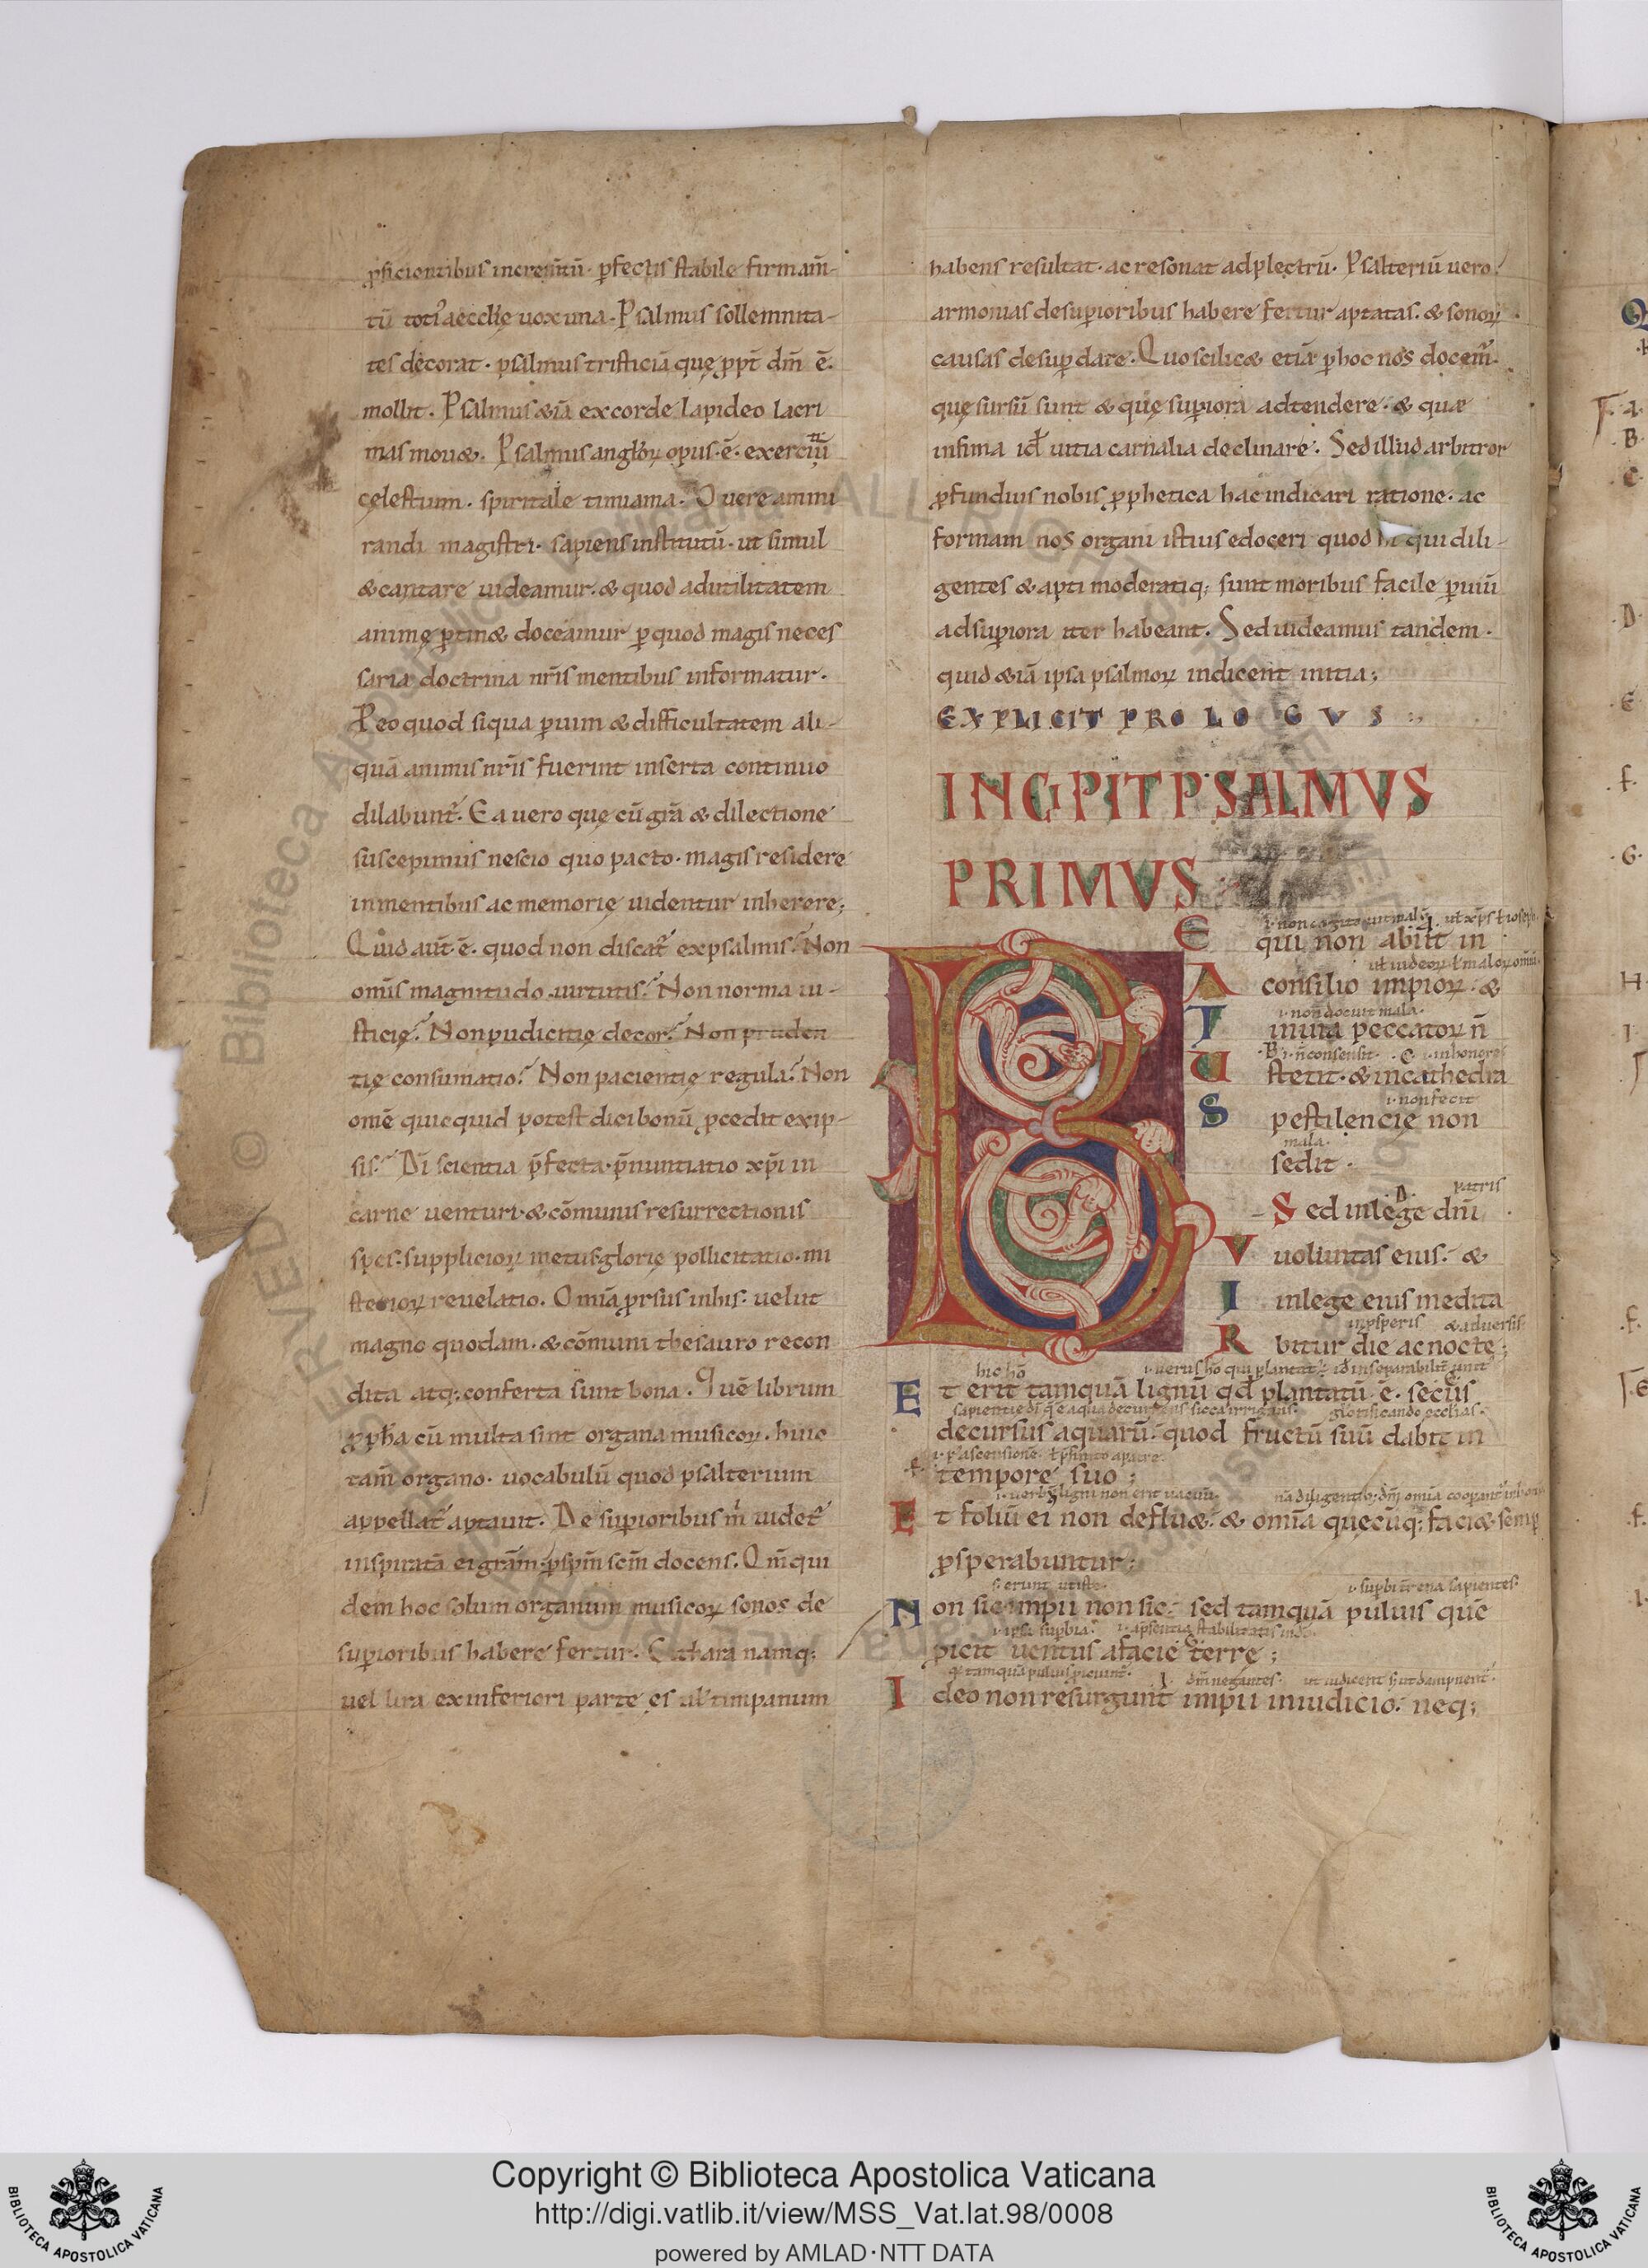 ꝓficientibus incrementū· ꝑfectis stabile firmam̄-
tū· toti᾽ aecclię uox una. Psalmus sollemnita-
tes decorat· psalmus tristiciā quę ꝓpt̄ dm̄ ē·
mollit. Psalmus &iā ex corde lapideo lacri
mas mou&. Psalmus anglorꝝ opus·ē· exerciū
cęlestium· spiritale timiama· O uere ammi
randi magistri· sapiens institutū· ut simul
& cantare uideamur· & quod ad utilitatem
animę ꝑtin& doceamur ꝑ quod magis neces
saria doctrina nr̄is mentibus informatur·
P eo quod siqua ꝑ uim & difficultatem ali-
quā animis nr̄is fuerint inserta continuo
dilabunt᷒. Ea uero quę cū grā & dilectione
suscepimus nescio quo pacto· magis residere
in mentibus ac memorię uidentur inherere;
Quid aut̄·ē· quod non discat᷒ ex psalmis? Non
om̄is magnitudo uirtutis? Non norma iu-
sticię? Non pudicitię decor? Non pruden
tię consumatio? Non pacientię regula? Non
om̄e quicquid potest dici bonū ꝓcedit ex ip-
sis? Di scientia ꝑfecta· p̄nuntiatio xp̄i in
carne uenturi· & cōmunis resurrectionis
spes· suppliciorꝝ metus· glorię pollicitatio· mi
steriorꝝ reuelatio. Omīa ꝓrsus in his· uelut
magno quodam· & cōmuni thesauro recon
dita atq; conferta sunt bona. Quē librum
ꝓpha cū multa sint organa musicorꝝ· huic
tam̄ organo· uocabulū quod psalterium
appellat᷒ aptauit. De supioribus m̄ uidet᷒
inspiratā ei grām· ꝑ spm̄ scm̄ docens. Qm̄ qui
dem hoc solum organum musicorꝝ sonos de
supioribus habere fertur. Cithara namq;
uel lira ex inferiori parte ęs ul᷒ timpanum
habens resultat· ac resonat ad plectrū. Psalteriū uero
armonias de supioribus habere fertur aptatas· & sonorꝝ
causas desup dare. Quo scilic& etiā ꝑ hoc nos docem᷒·
quę sursū sunt & quę supiora adtendere· & quæ
infima id᷒ uitia carnalia declinare. Sed illud arbitror
ꝓfundius nobis ꝓphetica hac indicari ratione· ac
formam nos organi istius edoceri quod hi qui dili-
gentes & apti moderatiq; sunt moribus facile ꝑuiū
ad supiora iter habeant. Sed uideamus tandem·
quid &iā ipsa psalmorꝝ indicent initia;
EXPLICIT PROLOGVS
INCIPIT PSALMVS
PRIMVS
BEATUS
qui non abiit in
consilio impiorꝝ· &
in uia peccatorꝝ n̄
stetit· & in cathedra
pestilencię non
sedit·
Sed in lege dn̄i
VIR
uoluntas eius· &
in lege eius medita
bitur die ac nocte;
Et erit tamquā lignū qd̄ plantatū ē· secus
decursus aquarū· quod fructū suū dabit in
tempore suo;
Et foliū ei non deflu&· & omīa quęcūq; faci& semp
ꝓsperabuntur;
Non sic impii non sic· sed tamquā puluis quē
ꝓicit uentus a facie terre;
Ideo non resurgunt impii in iudicio· neq;
Copyright © Biblioteca Apostolica Vaticana
http://digi.vatlib.it/view/MSS_Vat.lat.98/0008
powered by AMLAD·NTT DATA
BIBLIOTECA APOSTOLICA VATICANA
BIBLIOTECA APOSTOLICA VATICANA